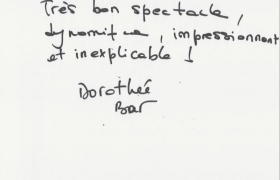 Très bon spectacle,
dynamique, impressionnant
et inexplicable !
Dorothée
Bar